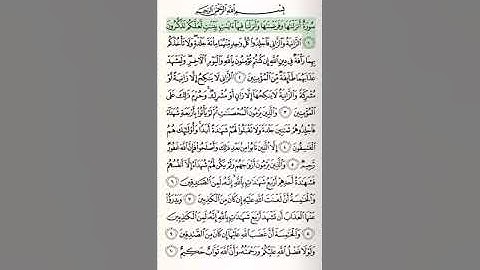 بِسْمِ ٱللَّهِ ٱلرَّحْمَٰنِ ٱلرَّحِيمِ
سُورَةٌ أَنزَلْنَٰهَا وَفَرَضْنَٰهَا وَأَنزَلْنَا فِيهَآ ءَايَٰتٍۭ بَيِّنَٰتٍ لَّعَلَّكُمْ تَذَكَّرُونَ
١ ٱلزَّانِيَةُ وَٱلزَّانِى فَٱجْلِدُوا۟ كُلَّ وَٰحِدٍ مِّنْهُمَا مِا۟ئَةَ جَلْدَةٍ وَلَا تَأْخُذْكُم
بِهِمَا رَأْفَةٌ فِى دِينِ ٱللَّهِ إِن كُنتُمْ تُؤْمِنُونَ بِٱللَّهِ وَٱلْيَوْمِ ٱلْءَاخِرِ وَلْيَشْهَدْ
عَذَابَهُمَا طَآئِفَةٌ مِّنَ ٱلْمُؤْمِنِينَ ٢ ٱلزَّانِى لَا يَنكِحُ إِلَّا زَانِيَةً أَوْ
مُشْرِكَةً وَٱلزَّانِيَةُ لَا يَنكِحُهَآ إِلَّا زَانٍ أَوْ مُشْرِكٌ وَحُرِّمَ ذَٰلِكَ عَلَى
ٱلْمُؤْمِنِينَ ٣ وَٱلَّذِينَ يَرْمُونَ ٱلْمُحْصَنَٰتِ ثُمَّ لَمْ يَأْتُوا۟ بِأَرْبَعَةِ شُهَدَآءَ
فَٱجْلِدُوهُمْ ثَمَٰنِينَ جَلْدَةً وَلَا تَقْبَلُوا۟ لَهُمْ شَهَٰدَةً أَبَدًا وَأُو۟لَٰٓئِكَ هُمُ
ٱلْفَٰسِقُونَ ٤ إِلَّا ٱلَّذِينَ تَابُوا۟ مِنۢ بَعْدِ ذَٰلِكَ وَأَصْلَحُوا۟ فَإِنَّ ٱللَّهَ غَفُورٌ
رَّحِيمٌ ٥ وَٱلَّذِينَ يَرْمُونَ أَزْوَٰجَهُمْ وَلَمْ يَكُن لَّهُمْ شُهَدَآءُ إِلَّآ أَنفُسُهُمْ
فَشَهَٰدَةُ أَحَدِهِمْ أَرْبَعُ شَهَٰدَٰتٍۭ بِٱللَّهِ إِنَّهُۥ لَمِنَ ٱلصَّٰدِقِينَ ٦
وَٱلْخَٰمِسَةُ أَنَّ لَعْنَتَ ٱللَّهِ عَلَيْهِ إِن كَانَ مِنَ ٱلْكَٰذِبِينَ ٧ وَيَدْرَؤُا۟
عَنْهَا ٱلْعَذَابَ أَن تَشْهَدَ أَرْبَعَ شَهَٰدَٰتٍۭ بِٱللَّهِ إِنَّهُۥ لَمِنَ ٱلْكَٰذِبِينَ
٨ وَٱلْخَٰمِسَةَ أَنَّ غَضَبَ ٱللَّهِ عَلَيْهَآ إِن كَانَ مِنَ ٱلصَّٰدِقِينَ ٩
وَلَوْلَا فَضْلُ ٱللَّهِ عَلَيْكُمْ وَرَحْمَتُهُۥ وَأَنَّ ٱللَّهَ تَوَّابٌ حَكِيمٌ ١٠